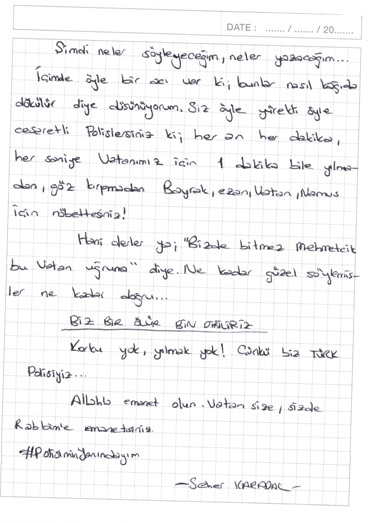 DATE : ....... / ....... / 20.......
Şimdi neler söyleyeceğim, neler yazacağım...
İçimde öyle bir acı var ki, bunlar nasıl kağıda
dökülür diye düşünüyorum. Siz öyle yürekli öyle
cesaretli Polislersiniz ki; her an her dakika,
her saniye Vatanımız için 1 dakika bile yılma-
dan, göz kırpmadan Bayrak, ezan, Vatan, Namus
için nöbettesiniz!
Hani derler ya; "Bizde bitmez Mehmetcik
bu Vatan uğruna" diye. Ne kadar güzel söylemiş-
ler ne kadar doğru...
BİZ BİR ÖLÜR BİN DİRİLİRİZ
Korku yok, yılmak yok! Çünkü biz TÜRK
Polisiyiz...
Allah'a emanet olun. Vatan size, sizde
Rabbim'e emanetsiniz.
#PolisiminYanındayım
- Seher KARADAL -